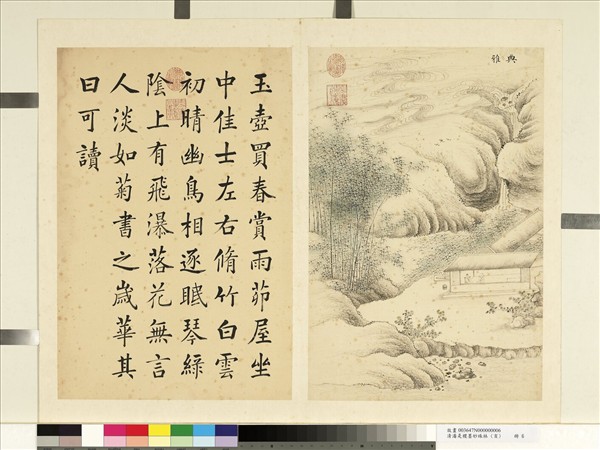 典雅
玉壺買春賞雨茆屋坐
中佳士左右脩竹白雲
初晴幽鳥相逐眠琴綠
陰上有飛瀑落花無言
人淡如菊書之歲華其
曰可讀
故畫 003647N000000006